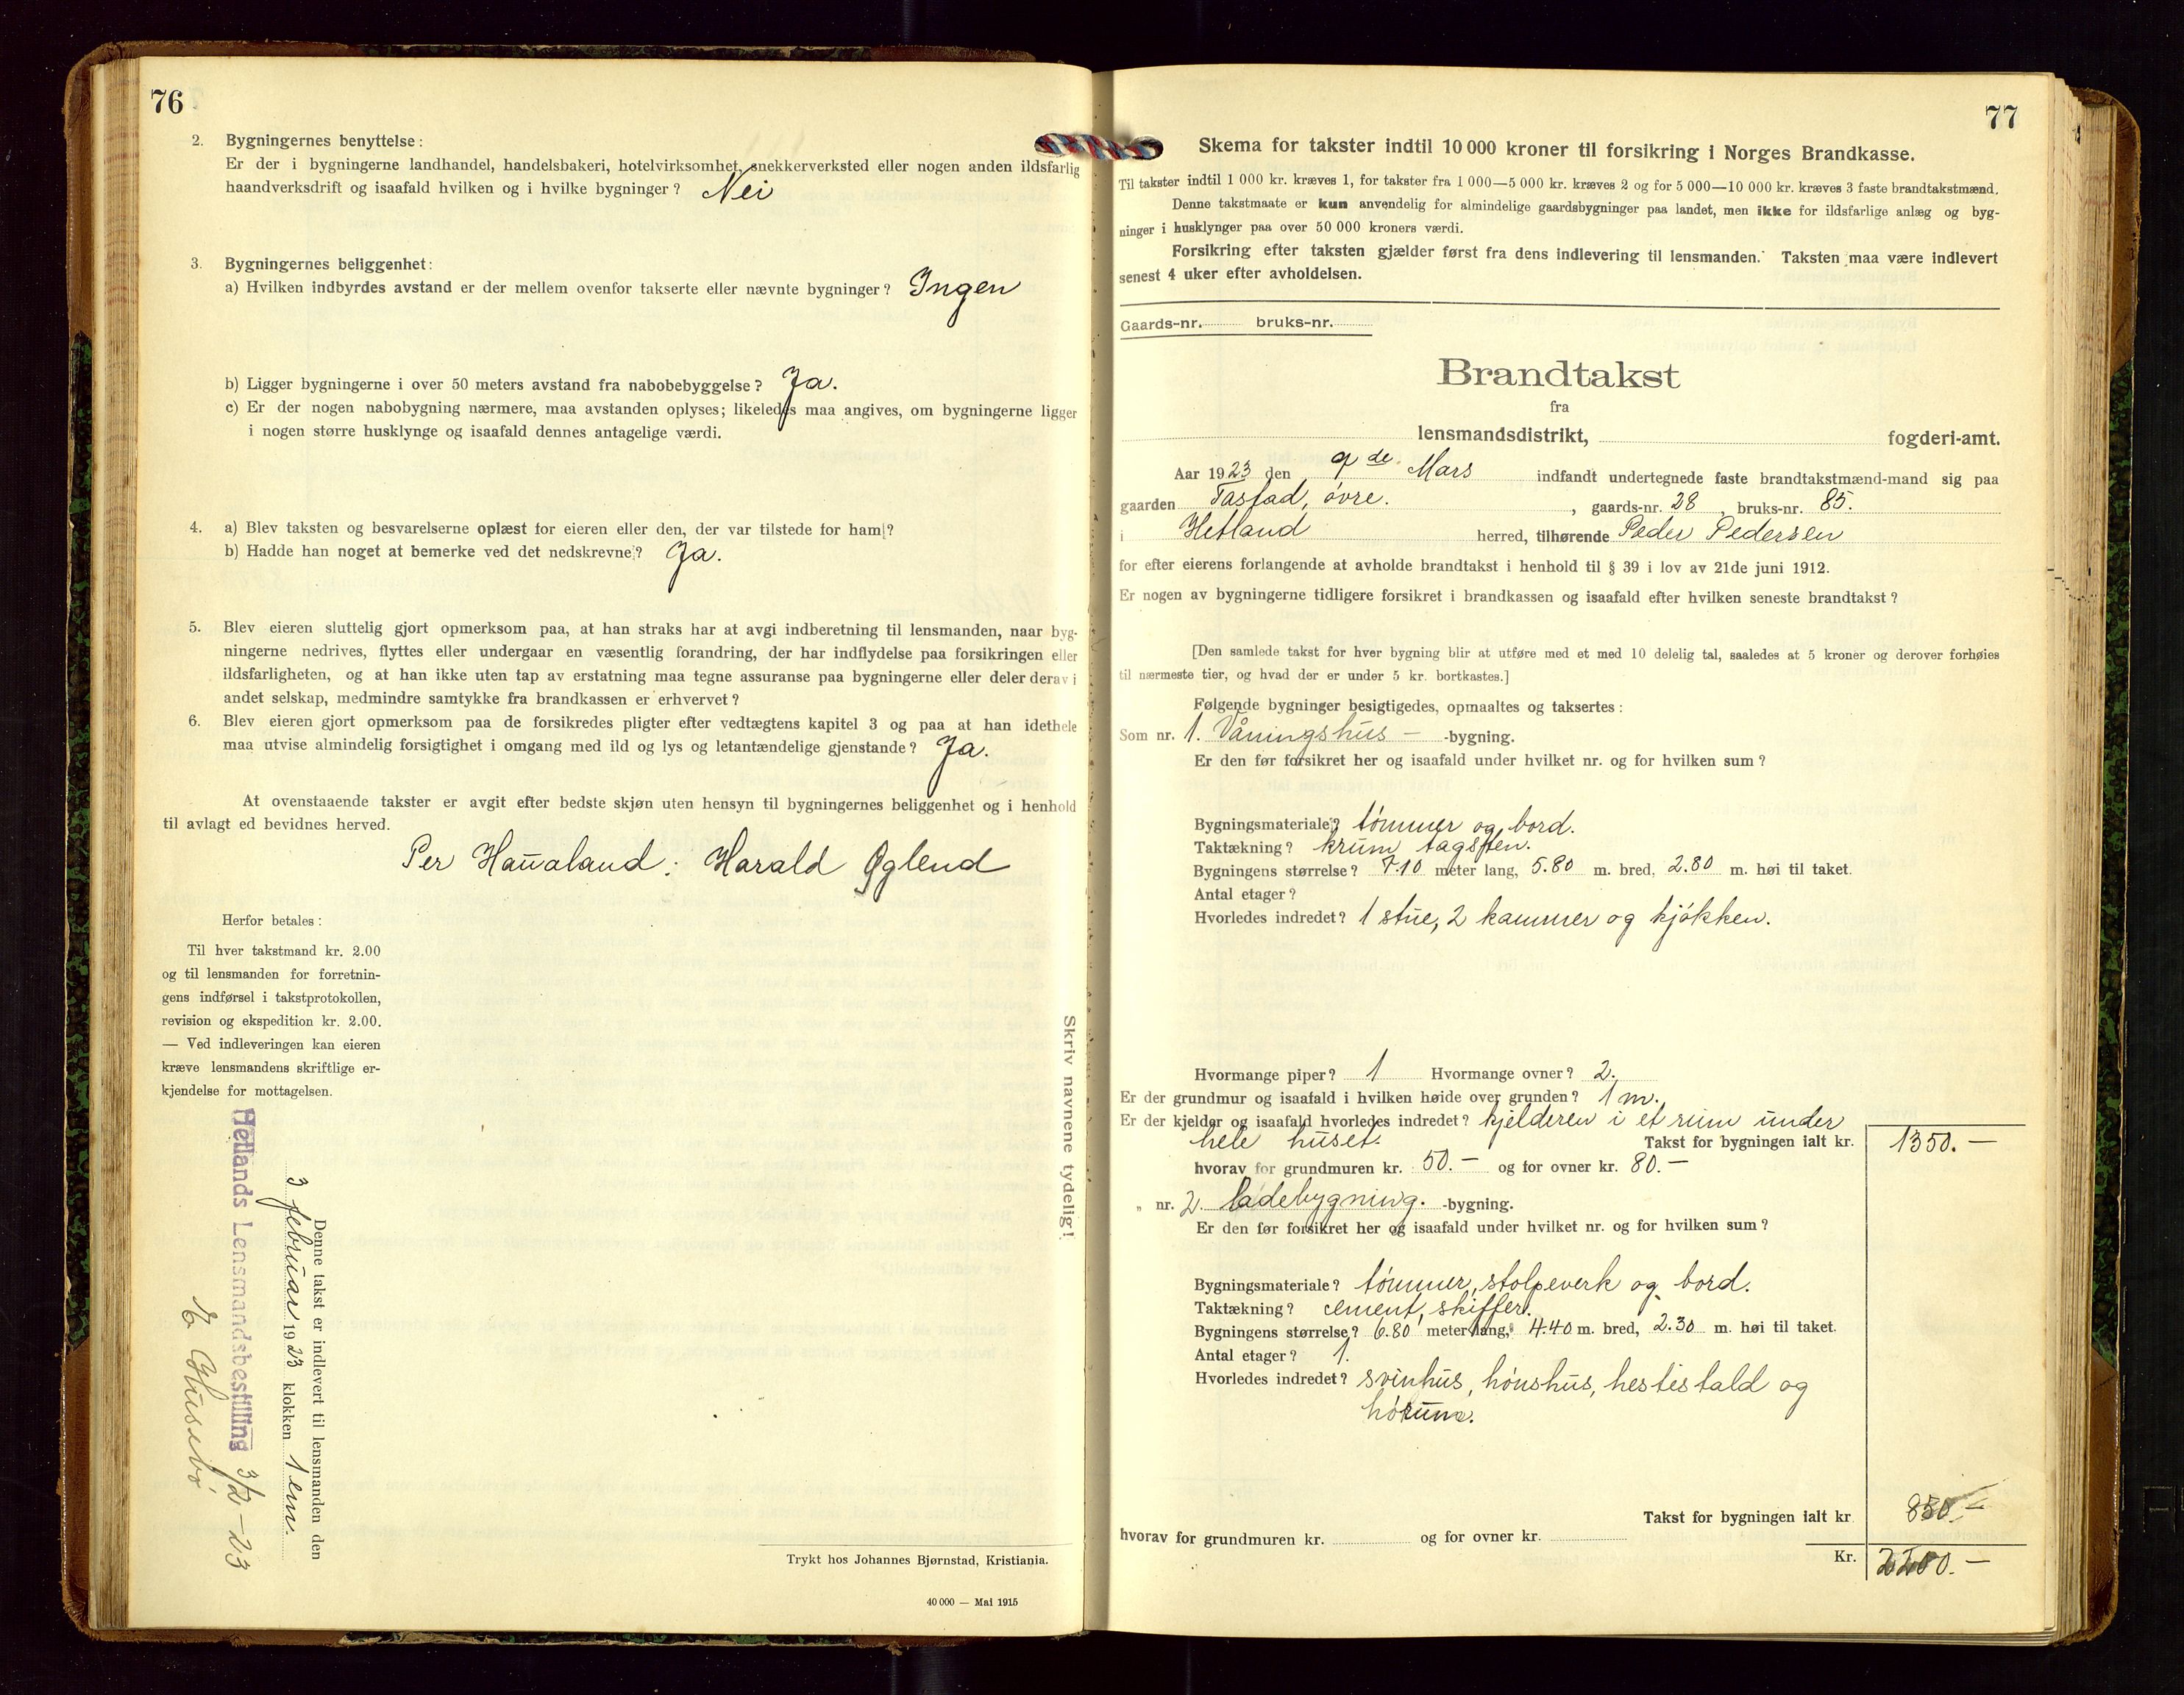 76
2. Bygningernes benyttelse:
Er der i bygningerne landhandel, handelsbakeri, hotelvirksomhet, snekkerverksted eller nogen anden ildsfarlig
haandverksdrift og isaafald hvilken og i hvilke bygninger? Nei
3. Bygningernes beliggenhet:
a) Hvilken indbyrdes avstand er der mellem ovenfor takserte eller nævnte bygninger? Ingen
b) Ligger bygningerne i over 50 meters avstand fra nabobebyggelse? Ja.
c) Er der nogen nabobygning nærmere, maa avstanden oplyses; likeledes maa angives, om bygningerne ligger
i nogen større husklynge og isaafald dennes antagelige værdi.
4. a) Blev taksten og besvarelserne oplæst for eieren eller den, der var tilstede for ham?
b) Hadde han noget at bemerke ved det nedskrevne? Ja.
5. Blev eieren sluttelig gjort opmerksom paa, at han straks har at avgi indberetning til lensmanden, naar byg-
ningerne nedrives, flyttes eller undergaar en væsentlig forandring, der har indflydelse paa forsikringen eller
ildsfarligheten, og at han ikke uten tap av erstatning maa tegne assuranse paa bygningerne eller deler derav i
andet selskap, medmindre samtykke fra brandkassen er erhvervet?
6. Blev eieren gjort opmerksom paa de forsikredes pligter efter vedtægtens kapitel 3 og paa at han idethele
maa utvise almindelig forsigtighet i omgang med ild og lys og letantændelige gjenstande? Ja.
At ovenstaaende takster er avgit efter bedste skjøn uten hensyn til bygningernes beliggenhet og i henhold
til avlagt ed bevidnes herved.
Per Haualand. Harald Øglend
Herfor betales:
Til hver takstmand kr. 2.00
og til lensmanden for forretnin-
gens indførsel i takstprotokollen,
revision og ekspedition kr. 2.00.
— Ved indleveringen kan eieren
kræve lensmandens skriftlige er-
kjendelse for mottagelsen.
Skriv navnene tydelig!
Denne takst er indlevert til lensmanden den
3 februar 1923 klokken 1 em.
Hetlands Lensmandsbestilling 3/2-23
E Husebø
Trykt hos Johannes Bjørnstad, Kristiania.
40 000 — Mai 1915
77
Skema for takster indtil 10 000 kroner til forsikring i Norges Brandkasse.
Til takster indtil 1 000 kr. kræves 1, for takster fra 1 000—5 000 kr. kræves 2 og for 5 000—10 000 kr. kræves 3 faste brandtakstmænd.
Denne takstmaate er kun anvendelig for almindelige gaardsbygninger paa landet, men ikke for ildsfarlige anlæg og byg-
ninger i husklynger paa over 50 000 kroners værdi.
Forsikring efter taksten gjælder først fra dens indlevering til lensmanden. Taksten maa være indlevert
senest 4 uker efter avholdelsen.
Gaards-nr. bruks-nr.
Brandtakst
fra
lensmandsdistrikt, fogderi-amt.
Aar 1923 den 9de Mars indfandt undertegnede faste brandtakstmænd-mand sig paa
gaarden Tastad, övre. , gaards-nr. 28 , bruks-nr. 85.
i Hetland herred, tilhørende Peder Pedersen
for efter eierens forlangende at avholde brandtakst i henhold til § 39 i lov av 21de juni 1912.
Er nogen av bygningerne tidligere forsikret i brandkassen og isaafald efter hvilken seneste brandtakst?
[Den samlede takst for hver bygning blir at utføre med et med 10 delelig tal, saaledes at 5 kroner og derover forhøies
til nærmeste tier, og hvad der er under 5 kr. bortkastes.]
Følgende bygninger besigtigedes, opmaaltes og taksertes:
Som nr. 1. Våningshus — -bygning.
Er den før forsikret her og isaafald under hvilket nr. og for hvilken sum?
Bygningsmateriale? tömmer og bord.
Taktækning? krum tagsten.
Bygningens størrelse? 7.10 meter lang, 5.80 m. bred, 2.80 m. høi til taket.
Antal etager?
Hvorledes indredet? 1 stue, 2 kammer og kjökken.
Hvormange piper? 1 Hvormange ovner? 2.
Er der grundmur og isaafald i hvilken høide over grunden? 1 m.
Er der kjelder og isaafald hvorledes indredet? kjelderen i et rum under
hele huset. Takst for bygningen ialt kr. 1350.—
hvorav for grundmuren kr. 50.— og for ovner kr. 80.—
„ nr. 2. ladebygning. -bygning.
Er den før forsikret her og isaafald under hvilket nr. og for hvilken sum?
Bygningsmateriale? tömmer, stolpeverk og bord.
Taktækning? cement, skiffer.
Bygningens størrelse? 6.80 meter lang, 4.40 m. bred, 2.30 m. høi til taket.
Antal etager? 1.
Hvorledes indredet? svinhus, hönshus, hestestald og
hörum.
Takst for bygningen ialt kr. 850.—
hvorav for grundmuren kr. og for ovner kr.
Kr. 2200.—